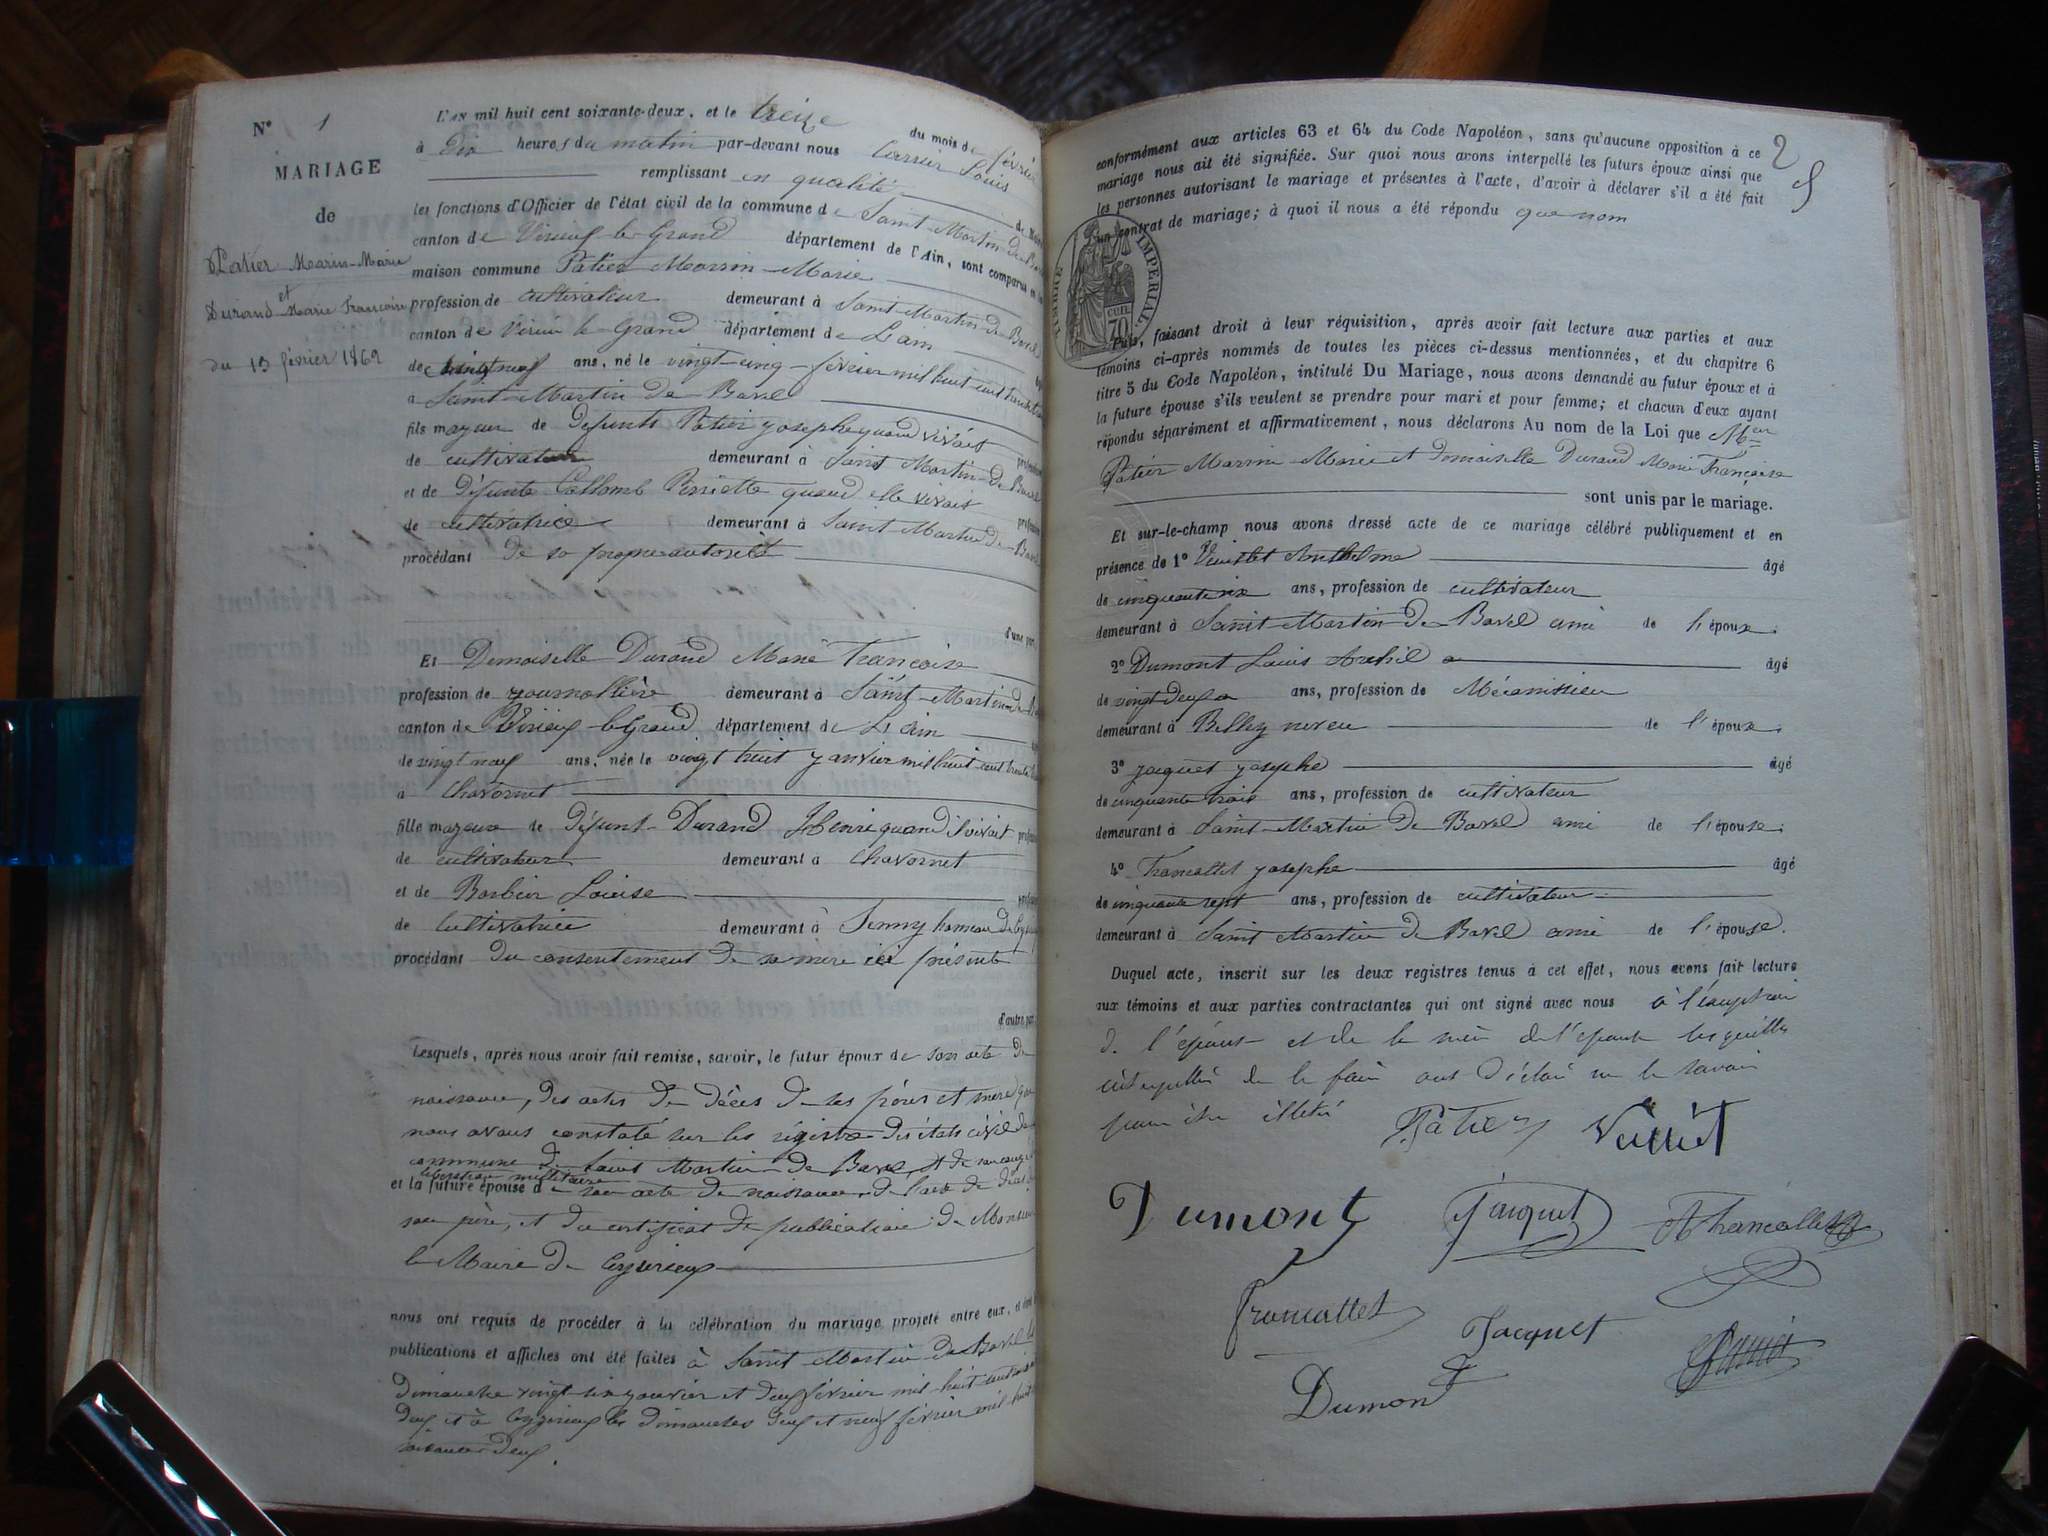 N° 1
MARIAGE
de
Patier Marin-Marie
et
Durand Marie Françoise
du 13 février 1862
L'AN mil huit cent soixante-deux, et le treize du mois de février
à dix heures du matin par-devant nous Carrier Louis
remplissant en qualité de
les fonctions d'Officier de l'état civil de la commune de Saint-Martin-de-
canton de Virieu le Grand département de l'Ain, sont comparus en la
maison commune Patier Marin-Marie
profession de cultivateur demeurant à Saint-Martin-de-Bavel
canton de Virieu le Grand département de L'ain
de vingt neuf ans, né le vingt-cinq février mil huit cent
à Saint-Martin de Bavel
fils majeur de Défunts Patier Josephe quand vivait
de cultivateur demeurant à Saint Martin-de-Bavel
et de Défunte Collomb Perriette quand elle vivait
de cultivatrice demeurant à Saint-Martin-de-Bavel
procédant de sa propre autorité
d'une part
Et Demoiselle Durand Marie Francoise
profession de journallière demeurant à Saint-Martin-de-
canton de Virieux le Grand, département de L'Ain
de vingt neuf ans, née le vingt huit janvier mil huit cent trente
à Chavornet
fille majeure de Défunt Durand Henri quand il vivait
de cultivateur demeurant à Chavornet
et de Barbier Louise
de Cultivatrice demeurant à hameau de
procédant du consentement de sa mère ici présente
d'autre part
Lesquels, après nous avoir fait remise, savoir, le futur époux de son acte de
naissance, des actes de décès de ses père et mère que
nous avons constaté sur les registre des états civil de
commune de Saint Martin-de Bavel, et de son congé
libération militaire
et la future épouse de son acte de naissance, de l'acte de décès
son père, et du certificat de publication de Monsieur
le Maire de Ceyzerieux
nous ont requis de procéder à la célébration du mariage projeté entre eux, et dont les
publications et affiches ont été faites à Saint-Martin-de-Bavel les
dimanche vingt-six janvier et deux février mil huit cent soixante
deux et à Ceyzerieux les dimanches deux et neuf février mil huit
soixante deux.
2
conformément aux articles 63 et 64 du Code Napoléon, sans qu'aucune opposition à ce
mariage nous ait été signifiée. Sur quoi nous avons interpellé les futurs époux ainsi que
les personnes autorisant le mariage et présentes à l'acte, d'avoir à déclarer s'il a été fait
un contrat de mariage; à quoi il nous a été répondu que nom
TIMBRE IMPERIAL
70
Puis, faisant droit à leur réquisition, après avoir fait lecture aux parties et aux
témoins ci-après nommés de toutes les pièces ci-dessus mentionnées, et du chapitre 6
titre 5 du Code Napoléon, intitulé Du Mariage, nous avons demandé au futur époux et à
la future épouse s'ils veulent se prendre pour mari et pour femme; et chacun d'eux ayant
répondu séparément et affirmativement, nous déclarons Au nom de la Loi que
Patier Marin-Marie et demoiselle Durand Marie Françoise
sont unis par le mariage.
Et sur-le-champ nous avons dressé acte de ce mariage célébré publiquement et en
présence de 1° Vuillet Anthelme âgé
de cinquante six ans, profession de cultivateur
demeurant à Saint-Martin-de-Bavel ami de l'époux.
2° Dumont Louis âgé
de vingt deux ans, profession de Mécanissien
demeurant à Belley neveu de l'époux.
3° Jacquet Josephe âgé
de cinquante trois ans, profession de cultivateur
demeurant à Saint-Martin de Bavel ami de l'épouse.
4° Francallet Josephe âgé
de cinquante sept ans, profession de cultivateur
demeurant à Saint Martin de Bavel ami de l'épouse.
Duquel acte, inscrit sur les deux registres tenus à cet effet, nous avons fait lecture
aux témoins et aux parties contractantes qui ont signé avec nous à l'exception
de l'épouse et de la mère de l'épouse lesquelles
interpellées de le faire ont déclaré ne le savoir
pour être illetré
Patier Vuillet
Dumont Jacquet Francallet
Francallet Jacquet
Dumont